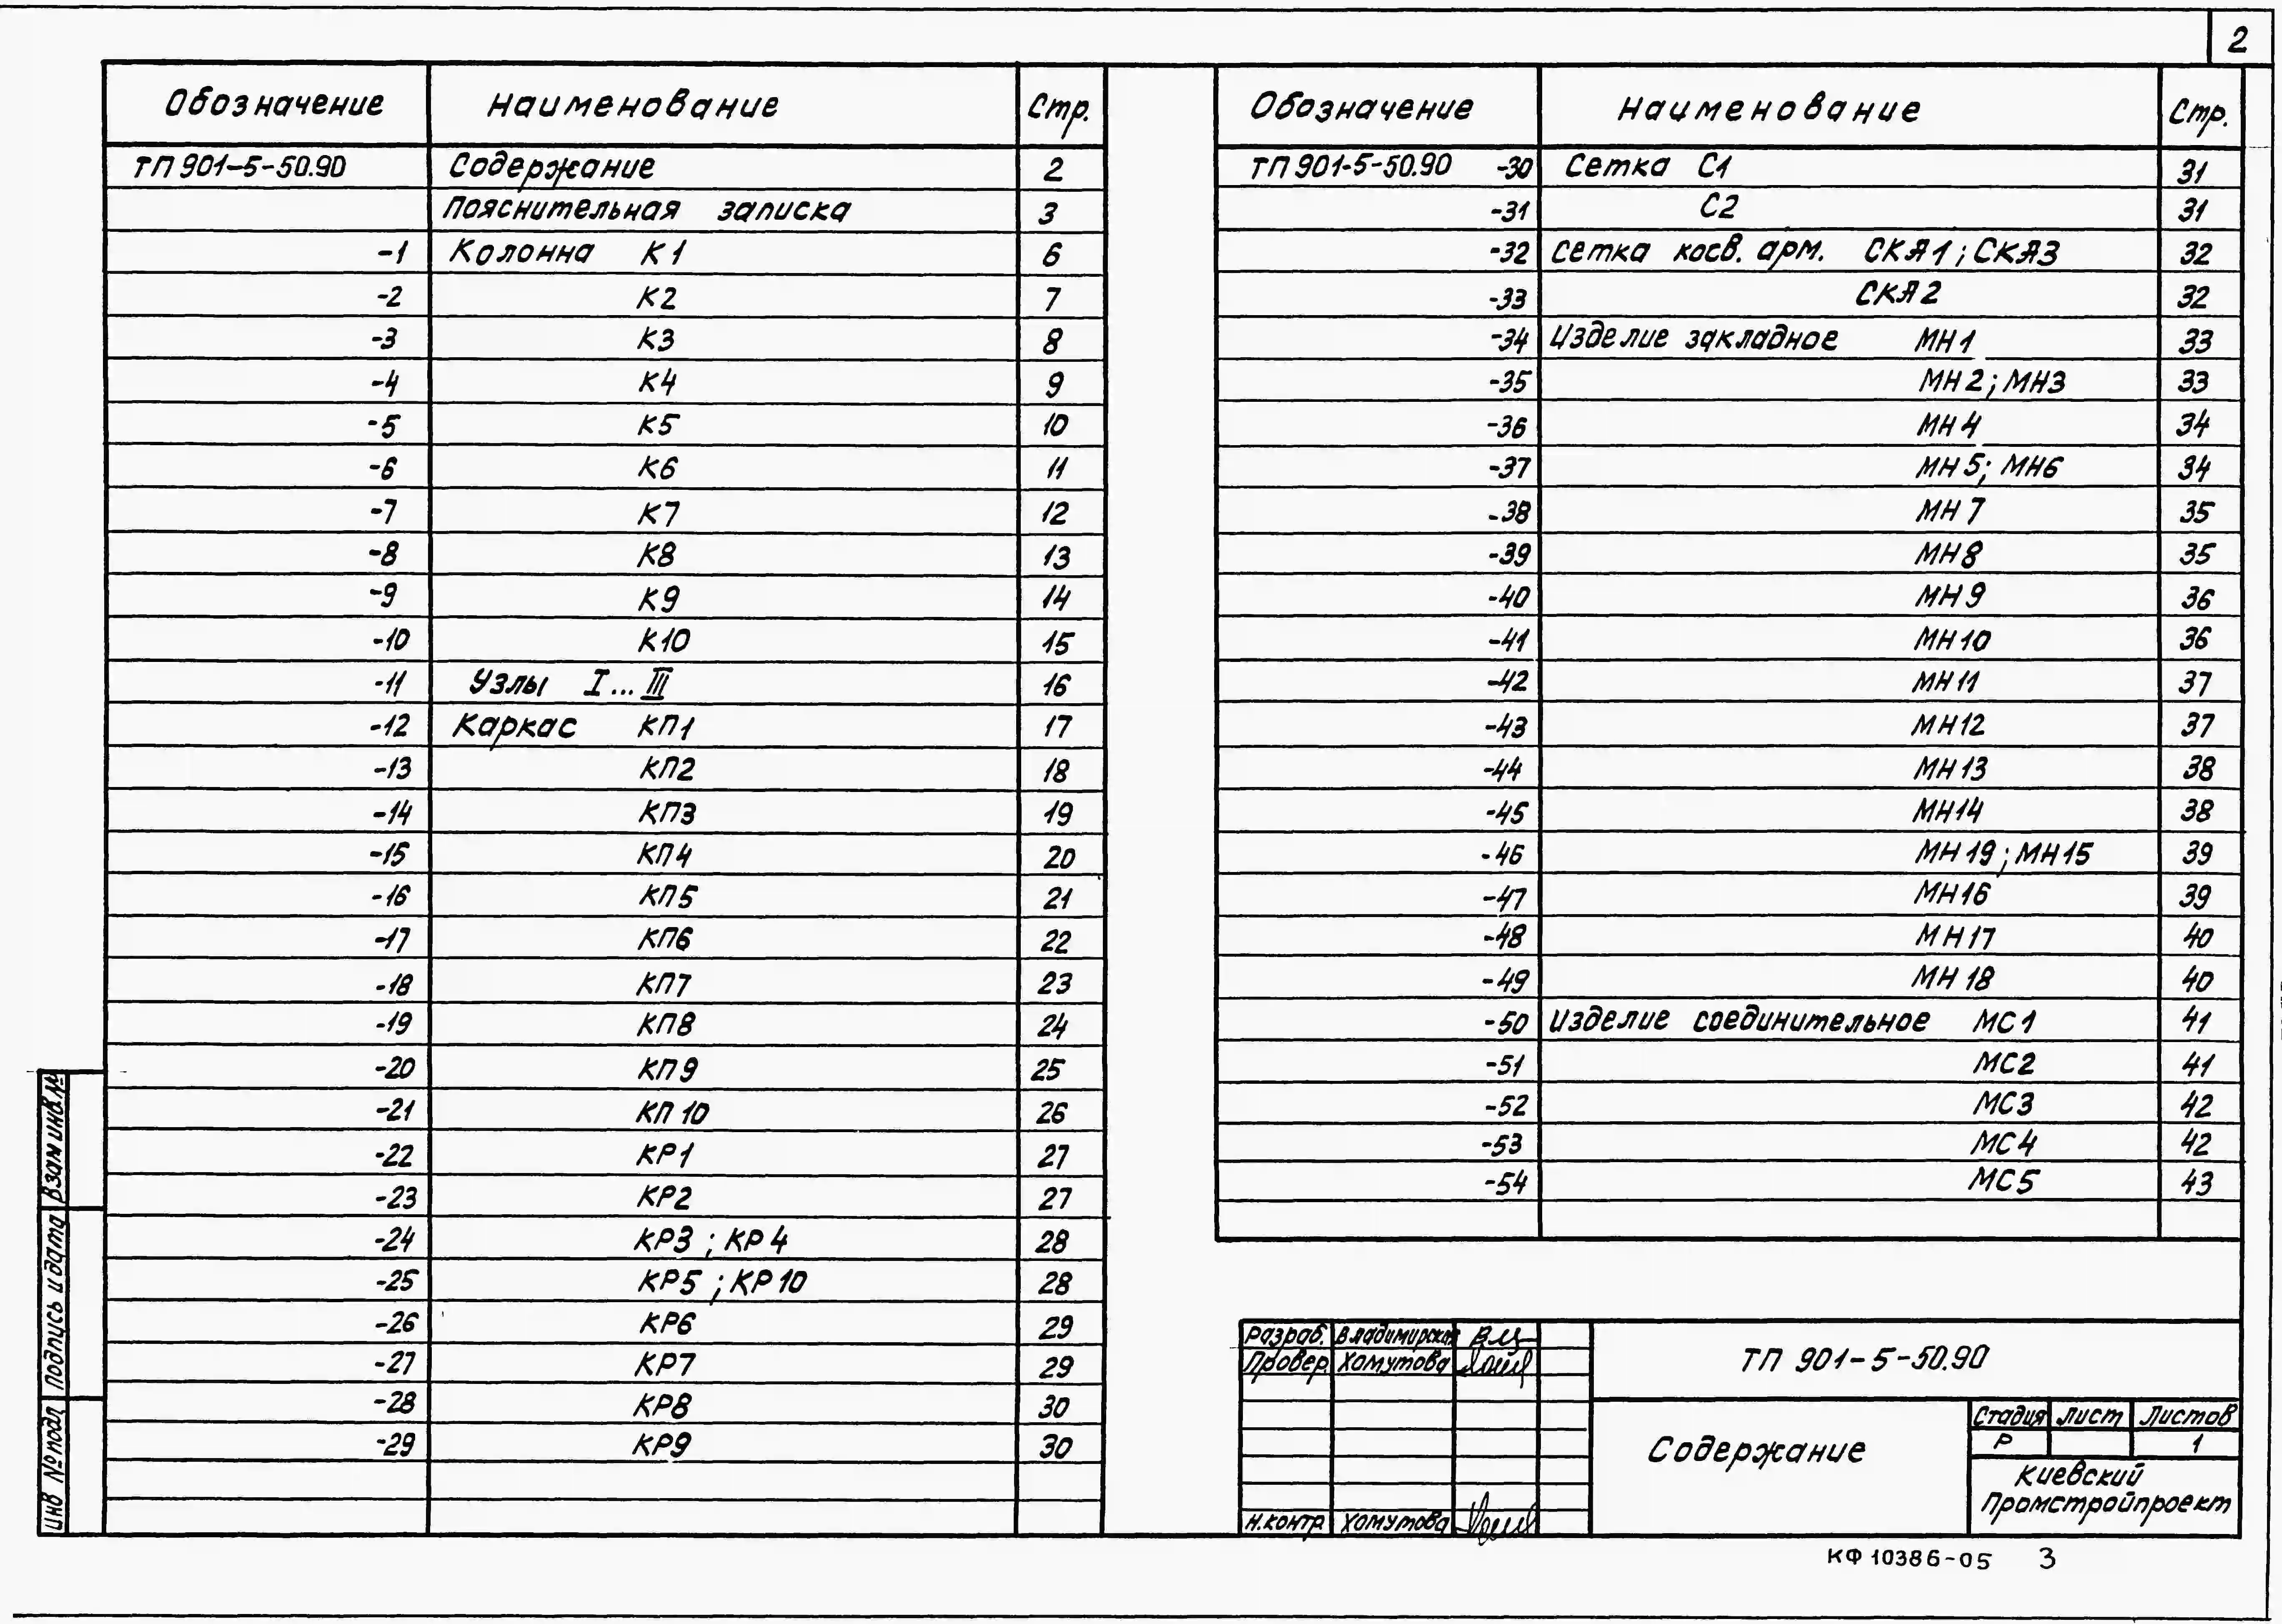 2
Обозначение Наименование Стр.
ТП 901-5-50.90 Содержание 2
Пояснительная записка 3
-1 Колонна К1 6
-2 К2 7
-3 К3 8
-4 К4 9
-5 К5 10
-6 К6 11
-7 К7 12
-8 К8 13
-9 К9 14
-10 К10 15
-11 Узлы I...III 16
-12 Каркас КП1 17
-13 КП2 18
-14 КП3 19
-15 КП4 20
-16 КП5 21
-17 КП6 22
-18 КП7 23
-19 КП8 24
-20 КП9 25
-21 КП10 26
-22 КР1 27
-23 КР2 27
-24 КР3 ; КР4 28
-25 КР5 ; КР10 28
-26 КР6 29
-27 КР7 29
-28 КР8 30
-29 КР9 30
Обозначение Наименование Стр.
ТП 901-5-50.90 -30 Сетка С1 31
-31 С2 31
-32 Сетка косв. арм. СКА1 ; СКА3 32
-33 СКА2 32
-34 Изделие закладное МН1 33
-35 МН2 ; МН3 33
-36 МН4 34
-37 МН5; МН6 34
-38 МН7 35
-39 МН8 35
-40 МН9 36
-41 МН10 36
-42 МН11 37
-43 МН12 37
-44 МН13 38
-45 МН14 38
-46 МН19 ; МН15 39
-47 МН16 39
-48 МН17 40
-49 МН18 40
-50 Изделие соединительное МС1 41
-51 МС2 41
-52 МС3 42
-53 МС4 42
-54 МС5 43
Взам инв.№
Подпись и дата
Инв № подл
Разраб. Владимирская
Провер. Хомутова
Н.контр Хомутова
ТП 901-5-50.90
Содержание
Стадия Лист Листов
Р 1
Киевский
Промстройпроект
КФ 10386-05 3